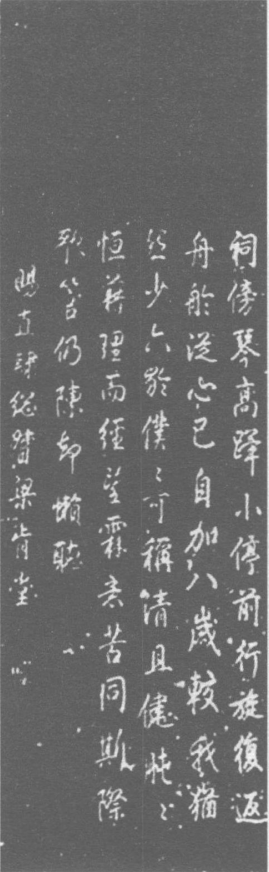 祠傍琴高蹕小停前行旋復返
舟舲從心已自加八歲較我猶
然少六齡僕僕可稱清且健肫肫
恒藉理而經望霖意苦同斯際
歌答仍陳却懶聽
賜直隸總督梁肯堂